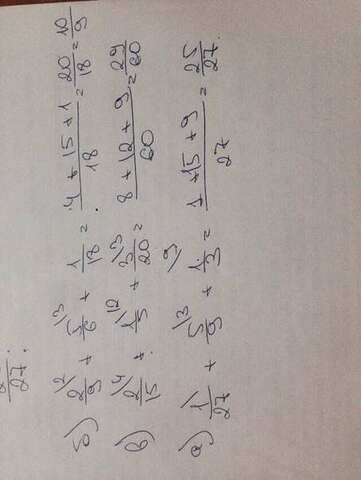 27.
б) 2\2/9 + 5\3/6 + 1/18 = 4 + 15 + 1/18 = 20/18 = 10/9
в) 2\4/15 + 1\12/5 + 3\3/20 = 8 + 12 + 9/60 = 29/60
а) 1/27 + 5\3/9 + 1\9/3 = 1 + 15 + 9/27 = 25/27.